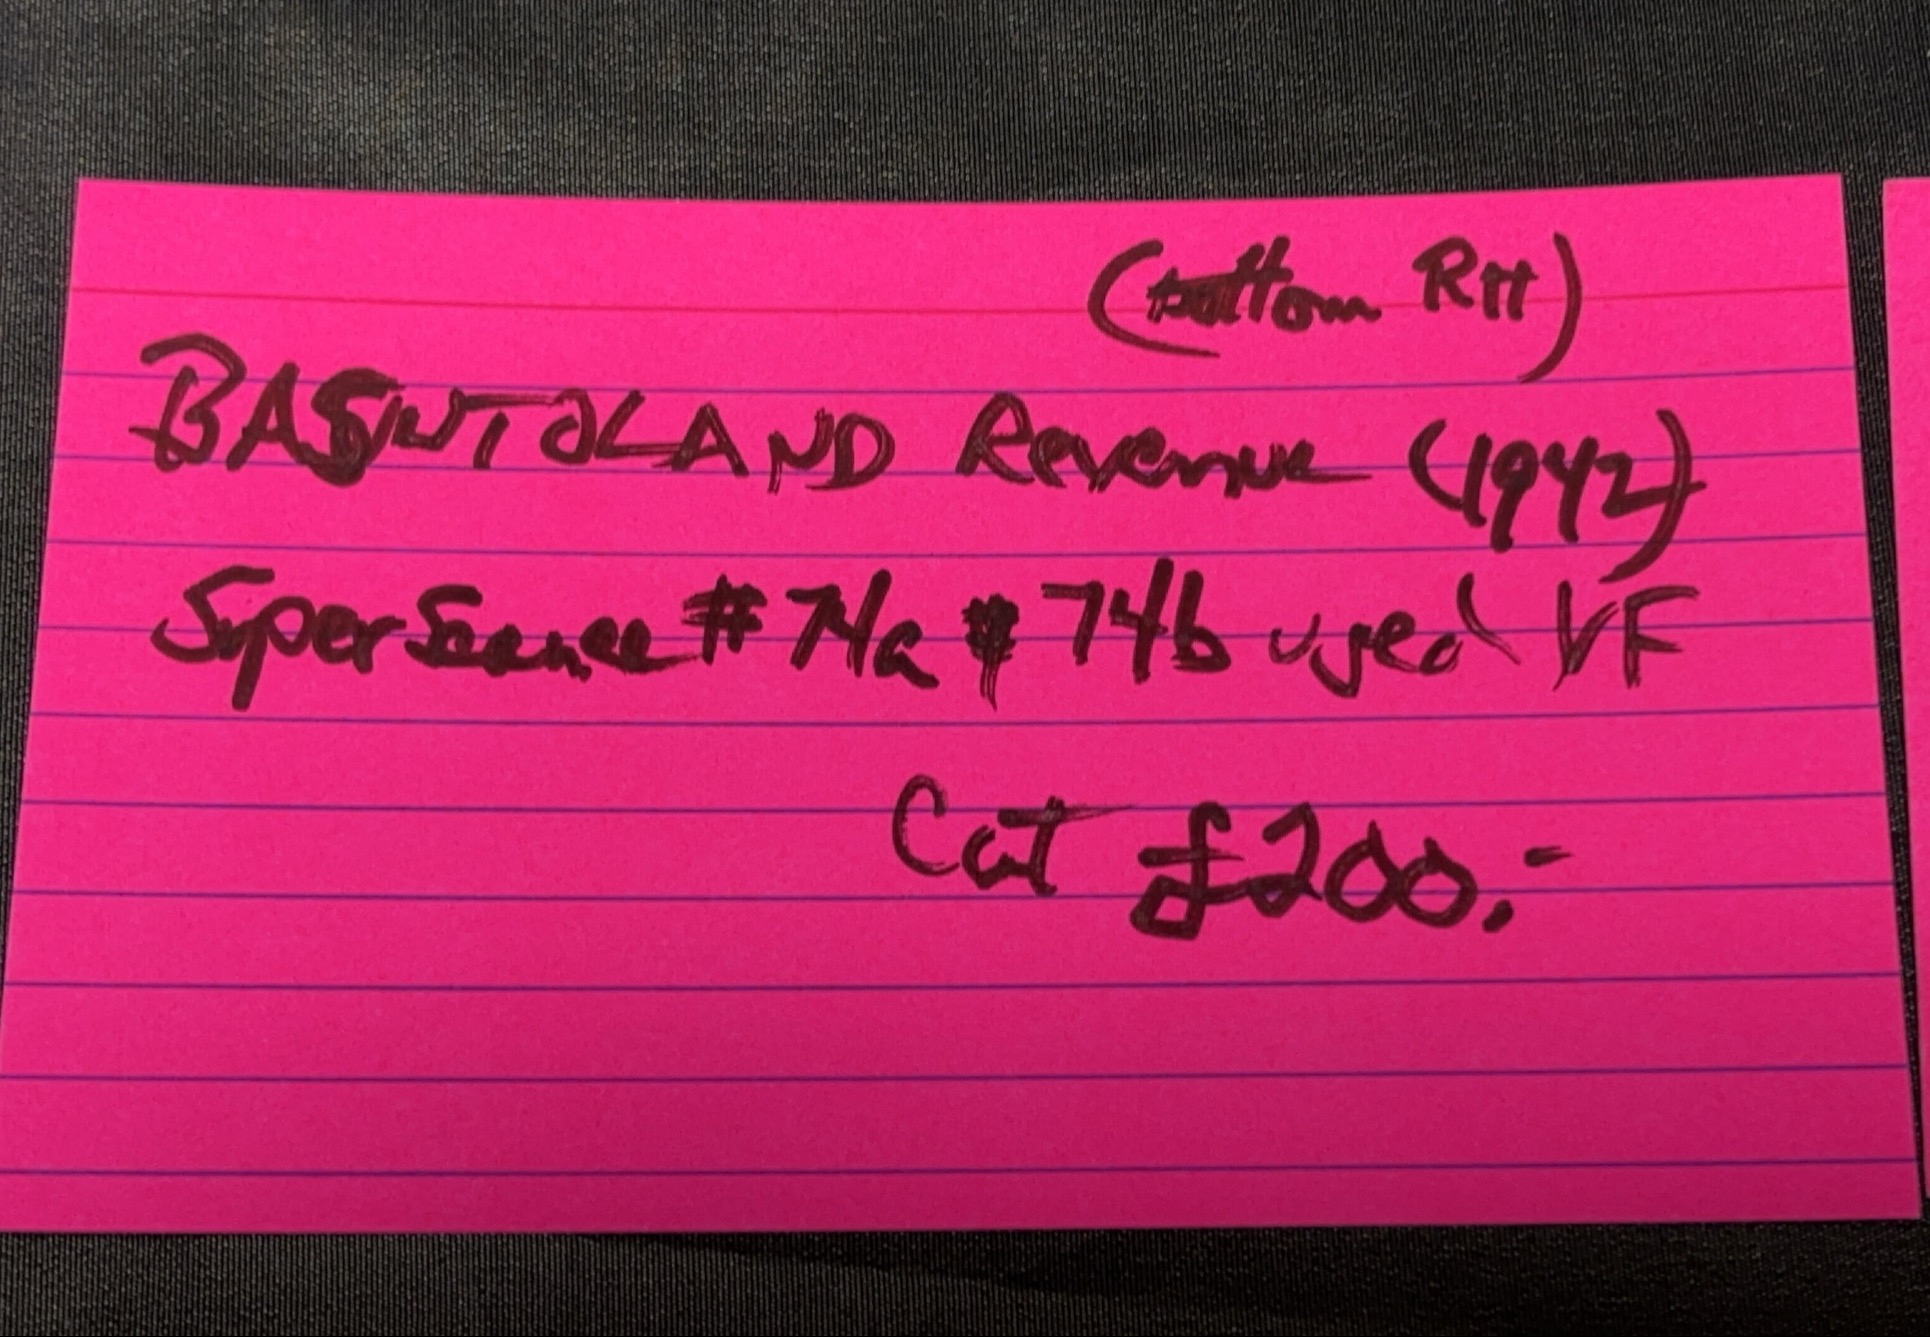 (bottom RH)
BASUTOLAND Revenue (1942)
Super Scarce # 74a & 74b used VF
Cat £200.-